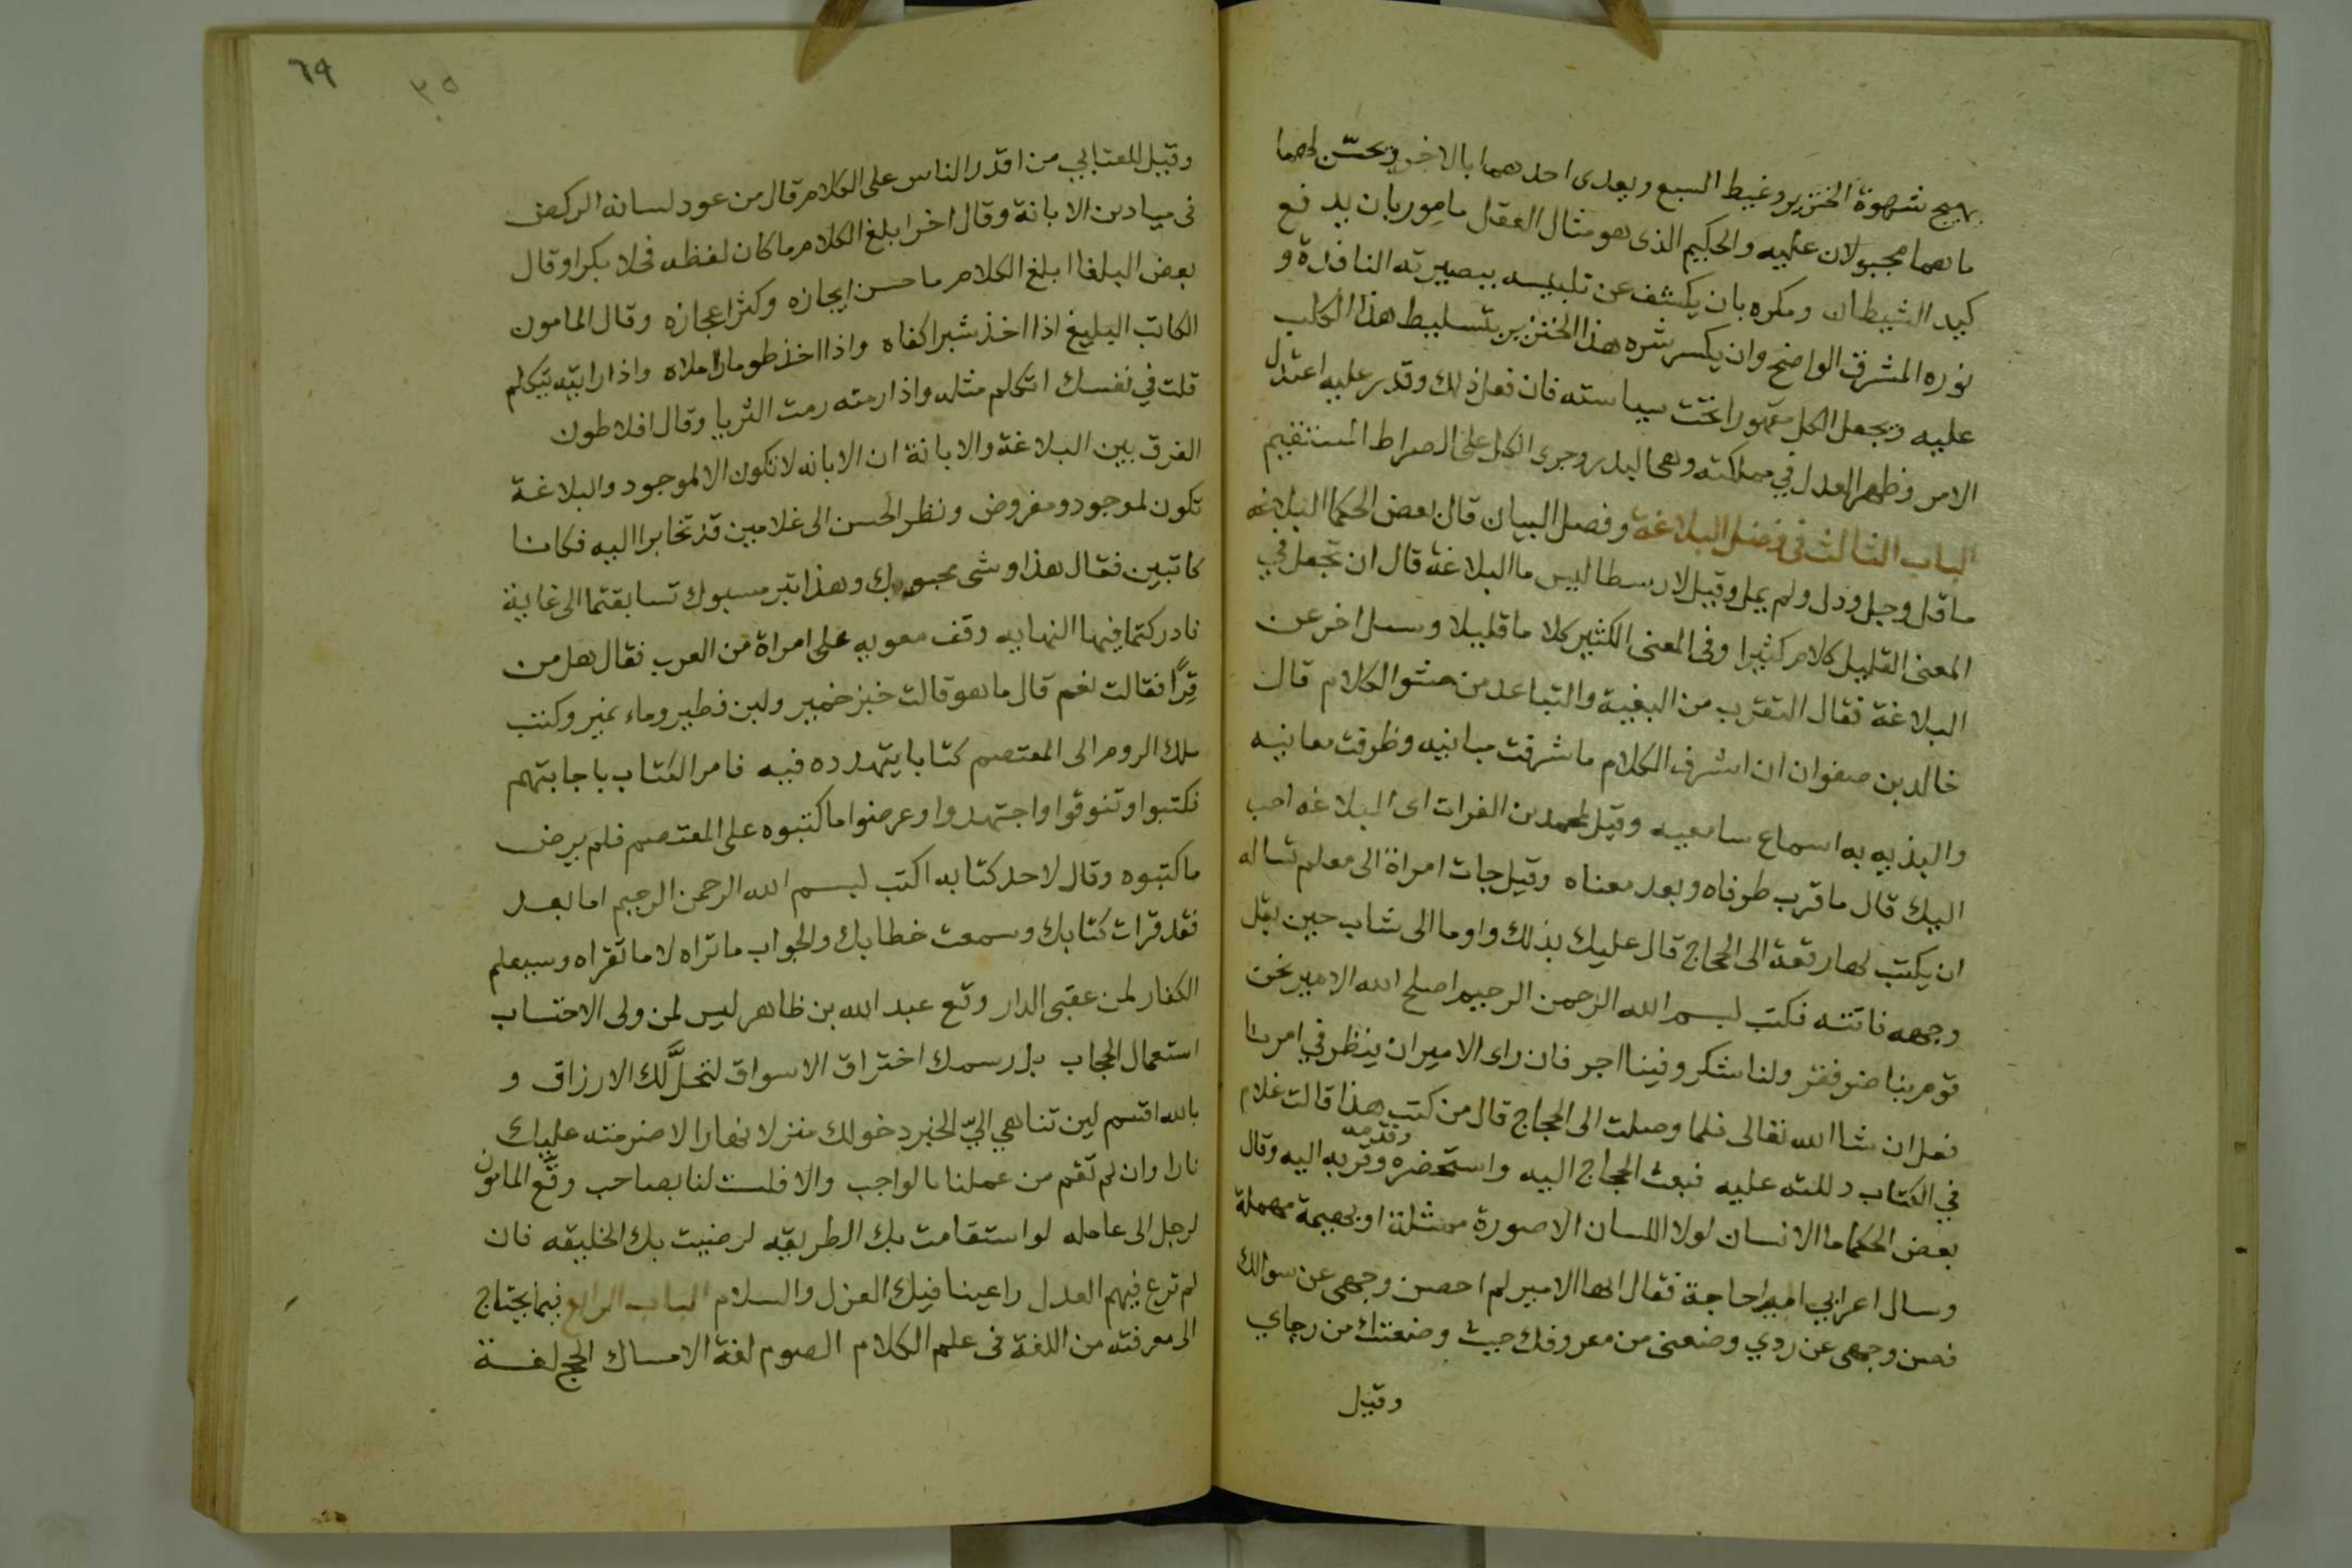 يهيج شهوة الخنزير وغيظ السبع ويعدى احدهما بالاخر ويحسّن لهما
ما هما مجبولان عليه والحكيم الذى هو مثال العقل مامور بان يدفع
كيد الشيطان ومكره بان يكشف عن تلبيسه ببصيرته النافذة و
نوره المشرق الواضح وان يكسر شره هذا الخنزير بتسليط هذا الكلب
عليه ويجعل الكل مقهورا تحت سياسته فان فعل ذلك وقدر عليه اعتدل
الامر وظهر العدل في مملكته وهى البدر وجرى الكل على الصراط المستقيم
الباب الثالث فى فضل البلاغة وفصل البيان قال بعض الحكما البلاغه
ما قل وجل ودل ولم يمل وقيل لارسطاليس ما البلاغة قال ان تجعل في
المعنى القليل كلام كثيرا وفى المعنى الكثير كلاما قليلا وسيل اخر عن
البلاغة فقال التقرب من البغية والتباعد من حشو الكلام قال
خالد بن صفوان ان اشرف الكلام ما شرفت مبانيه وظرفت معانيه
والتذ به اسماع سامعيه وقيل لمحمد بن الفرات اى البلاغه احب
اليك قال ما قرب طرفاه وبعد معناه وقيل جات امراة الى معلم تساله
ان يكتب لها رقعة الى الحجاج قال عليك بذلك واوما الى شاب حين بقل
وجهه فاتته فكتب لبسم الله الرحمن الرحيم اصلح الله الامير نحن
قوم بنا ضر وفقر ولنا شكر وفينا اجر فان راى الامير ان ينظر في امرنا
فعل ان شا الله تعالى فلما وصلت الى الحجاج قال من كتب هذا قالت غلام
في الكتاب دللته عليه فبعث الحجاج اليه واستحضره وقربه وقدمه اليه وقال
بعض الحكما ما الانسان لولا اللسان الا صورة ممثلة او بهيمة مهملة
وسال اعرابي امير حاجة فقال ايها الامير لم احصن وجهى عن سوالك
فصن وجهى عن ردي وضعنى من معروفك حيث وضعتك من رجاي
وقيل
٦٩
٣٥
وقيل للعتابي من اقدر الناس على الكلام قال من عود لسانه الركض
فى ميادين الابانة وقال اخر ابلغ الكلام ما كان لفظه فحلا بكرا وقال
بعض البلغا ابلغ الكلام ما حسن ايجازه وكثر اعجازه وقال المامون
الكاتب البليغ اذا اخذ شبرا كفاه واذا اخذ طومارا ملاه واذا رايته يتكلم
قلت في نفسك اتكلم مثله واذا رمته رمت الثريا وقال افلاطون
الفرق بين البلاغة والابانة ان الابانه لا تكون الا لموجود والبلاغة
تكون لموجود ومفروض ونظر الحسن الى غلامين قد تخايرا اليه فكانا
كاتبين فقال هذا وشى محبوك وهذا تبر مسبوك تسابقتما الى غاية
فادركتما فيها النهايه وقف معويه على امراة من العرب فقال هل من
قِرًا فقالت نعم قال ما هو قالت خبز خمير ولبن فطير وماء نمير وكتب
ملك الروم الى المعتصم كتابا يتهدده فيه فامر الكتاب باجابتهم
فكتبوا وتنوقوا واجتهدوا وعرضوا ما كتبوه على المعتصم فلم يرض
ما كتبوه وقال لاحد كتابه اكتب لبسم الله الرحمن الرحيم اما بعد
فقد قرات كتابك وسمعت خطابك والجواب ما تراه لا ما تقراه وسيعلم
الكفار لمن عقبى الدار وقع عبد الله بن ظاهر ليس لمن ولى الاحتساب
استعمال الحجاب بل رسمك اختراق الاسواق لتحلَّ لك الارزاق و
بالله اقسم لين تناهي اليّ الخبر دخولك منزلا نهارا لاضرمنه عليك
نارا وان لم تقم من عملنا بالواجب والا فلست لنا بصاحب وقّع المامون
لرجل الى عامله لو استقامت بك الطريقه لرضيت بك الخليقه فان
لم ترع فيهم العدل راعينا فيك العزل والسلام الباب الرابع فيما يحتاج
الى معرفته من اللغة فى علم الكلام الصوم لغة الامساك الحج لغة